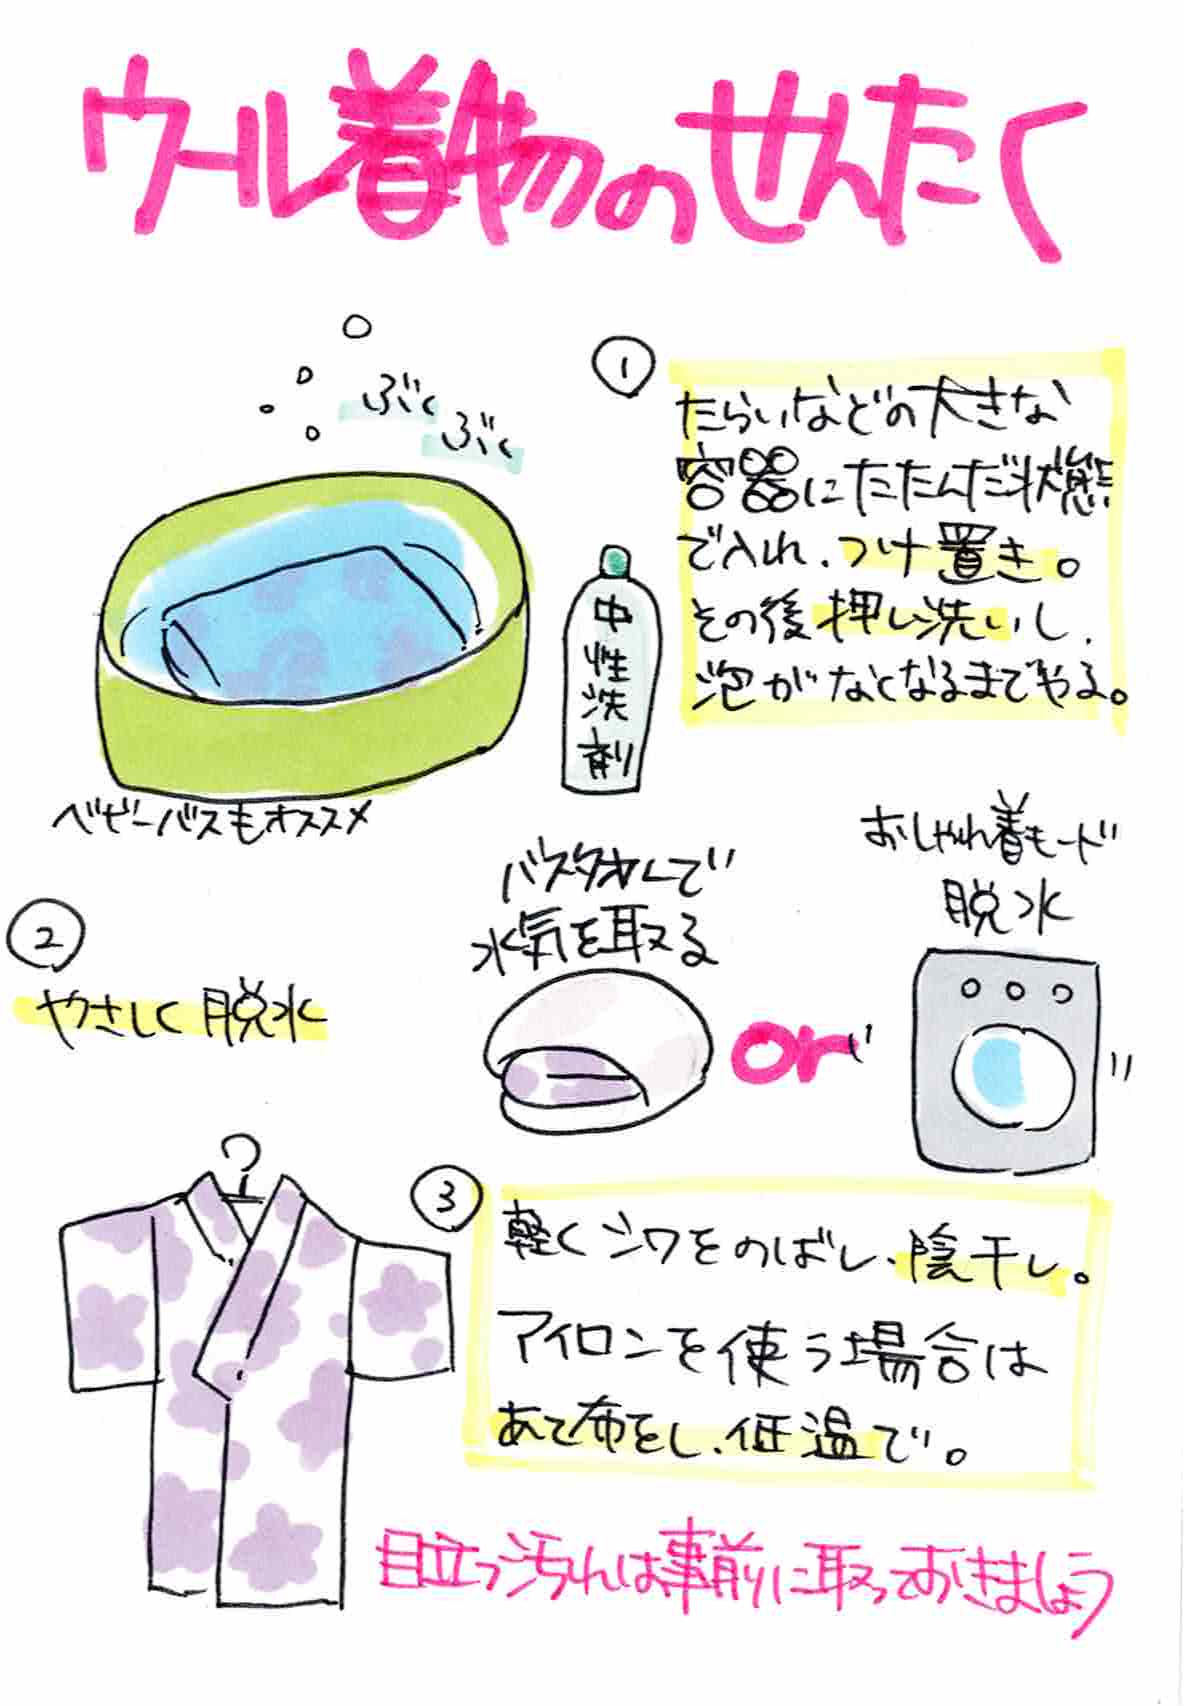 ウール着物のせんたく
ぶく
ぶく
①
たらいなどの大きな
容器にたたんだ状態
で入れ、つけ置き。
その後押し洗いし、
泡がなくなるまでやる。
中性洗剤
ベビーバスもオススメ
②
やさしく脱水
バスタオルで
水気を取る
or
おしゃれ着モード
脱水
③
軽くシワをのばし、陰干し。
アイロンを使う場合は
あて布をし、低温で。
目立つ汚れは事前に取っておきましょう